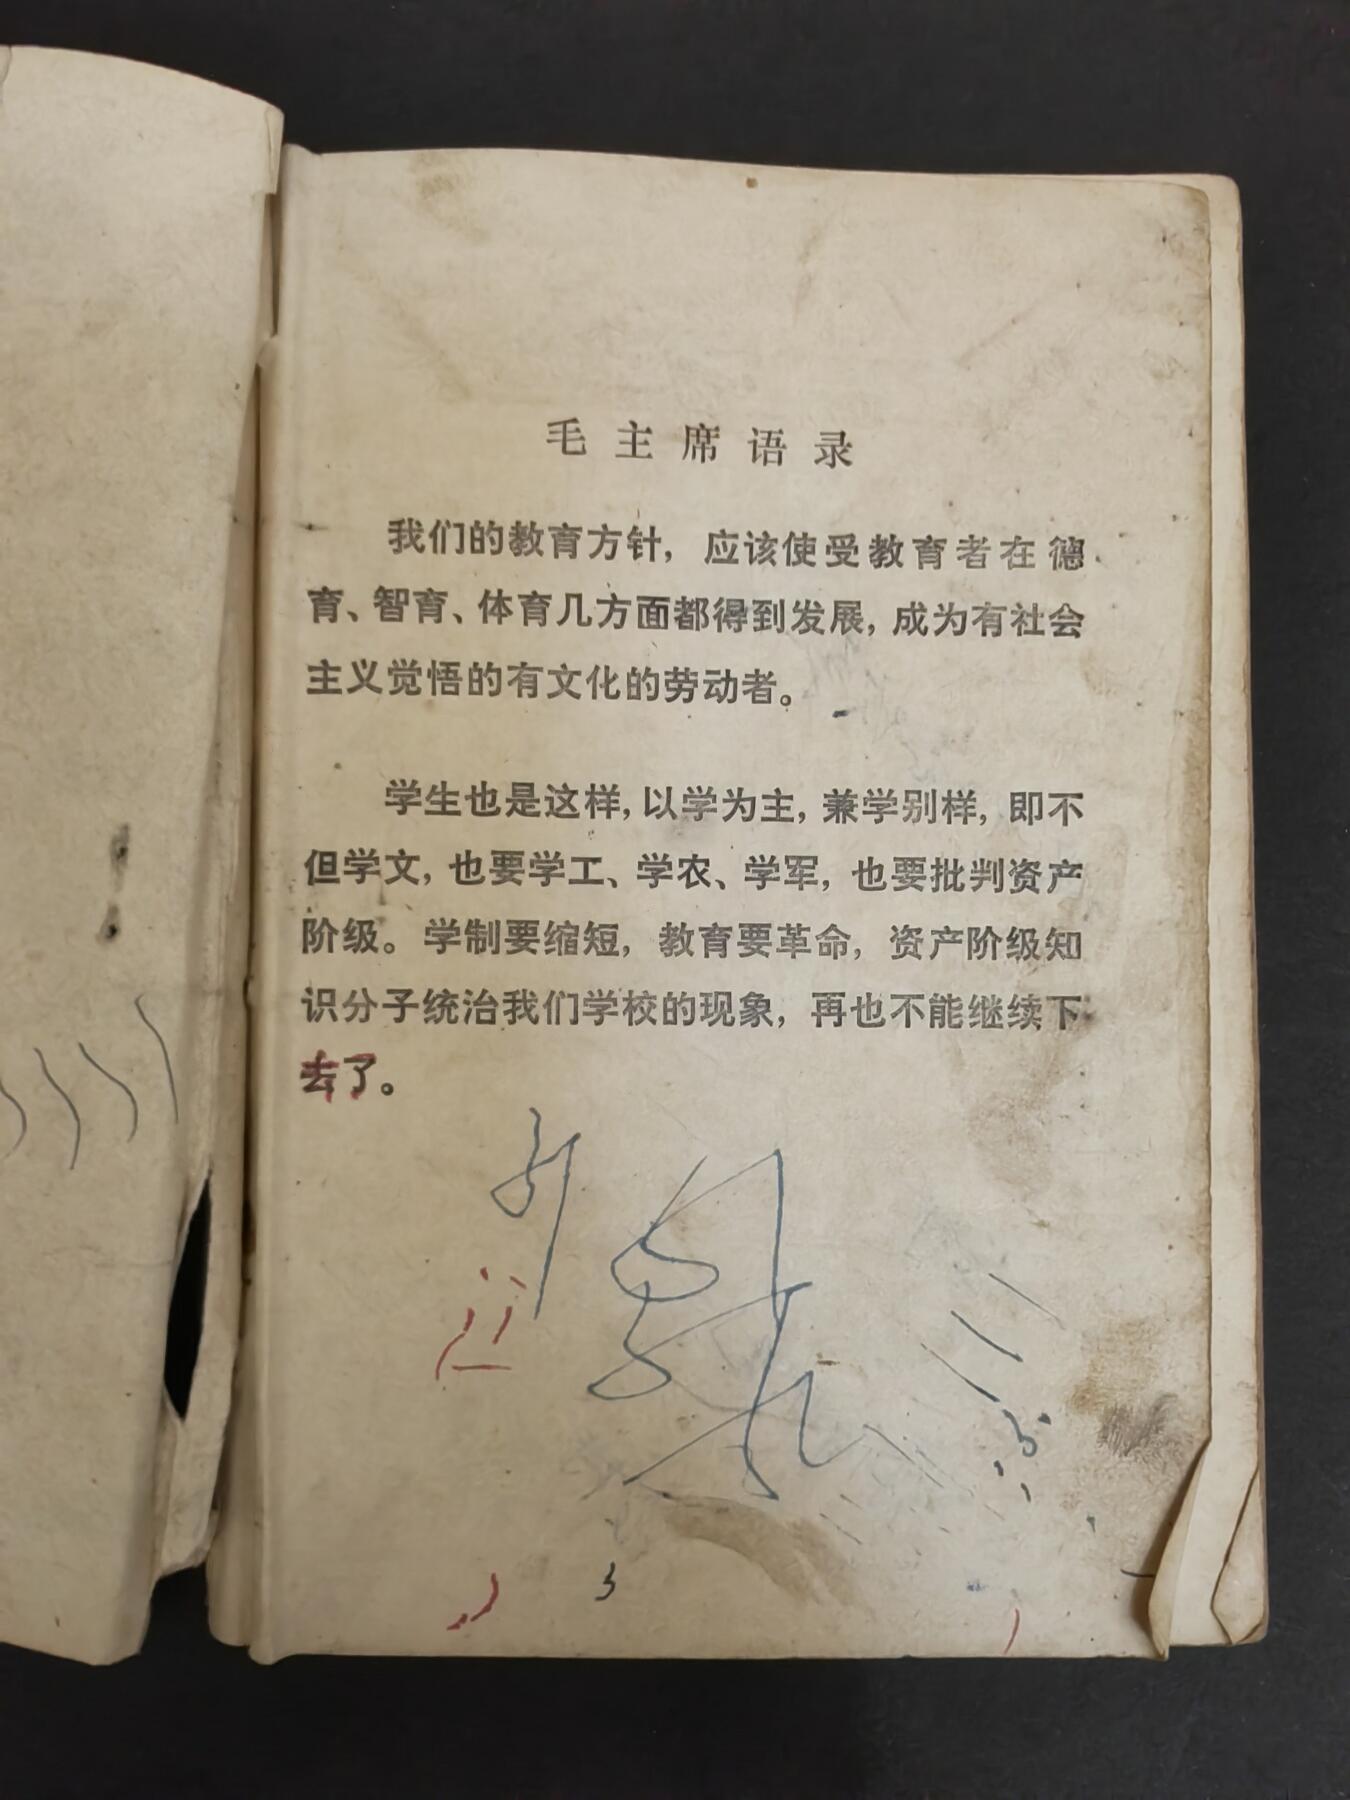 毛主席语录
我们的教育方针，应该使受教育者在德
育、智育、体育几方面都得到发展，成为有社会
主义觉悟的有文化的劳动者。
学生也是这样，以学为主，兼学别样，即不
但学文，也要学工、学农、学军，也要批判资产
阶级。学制要缩短，教育要革命，资产阶级知
识分子统治我们学校的现象，再也不能继续下
去了。